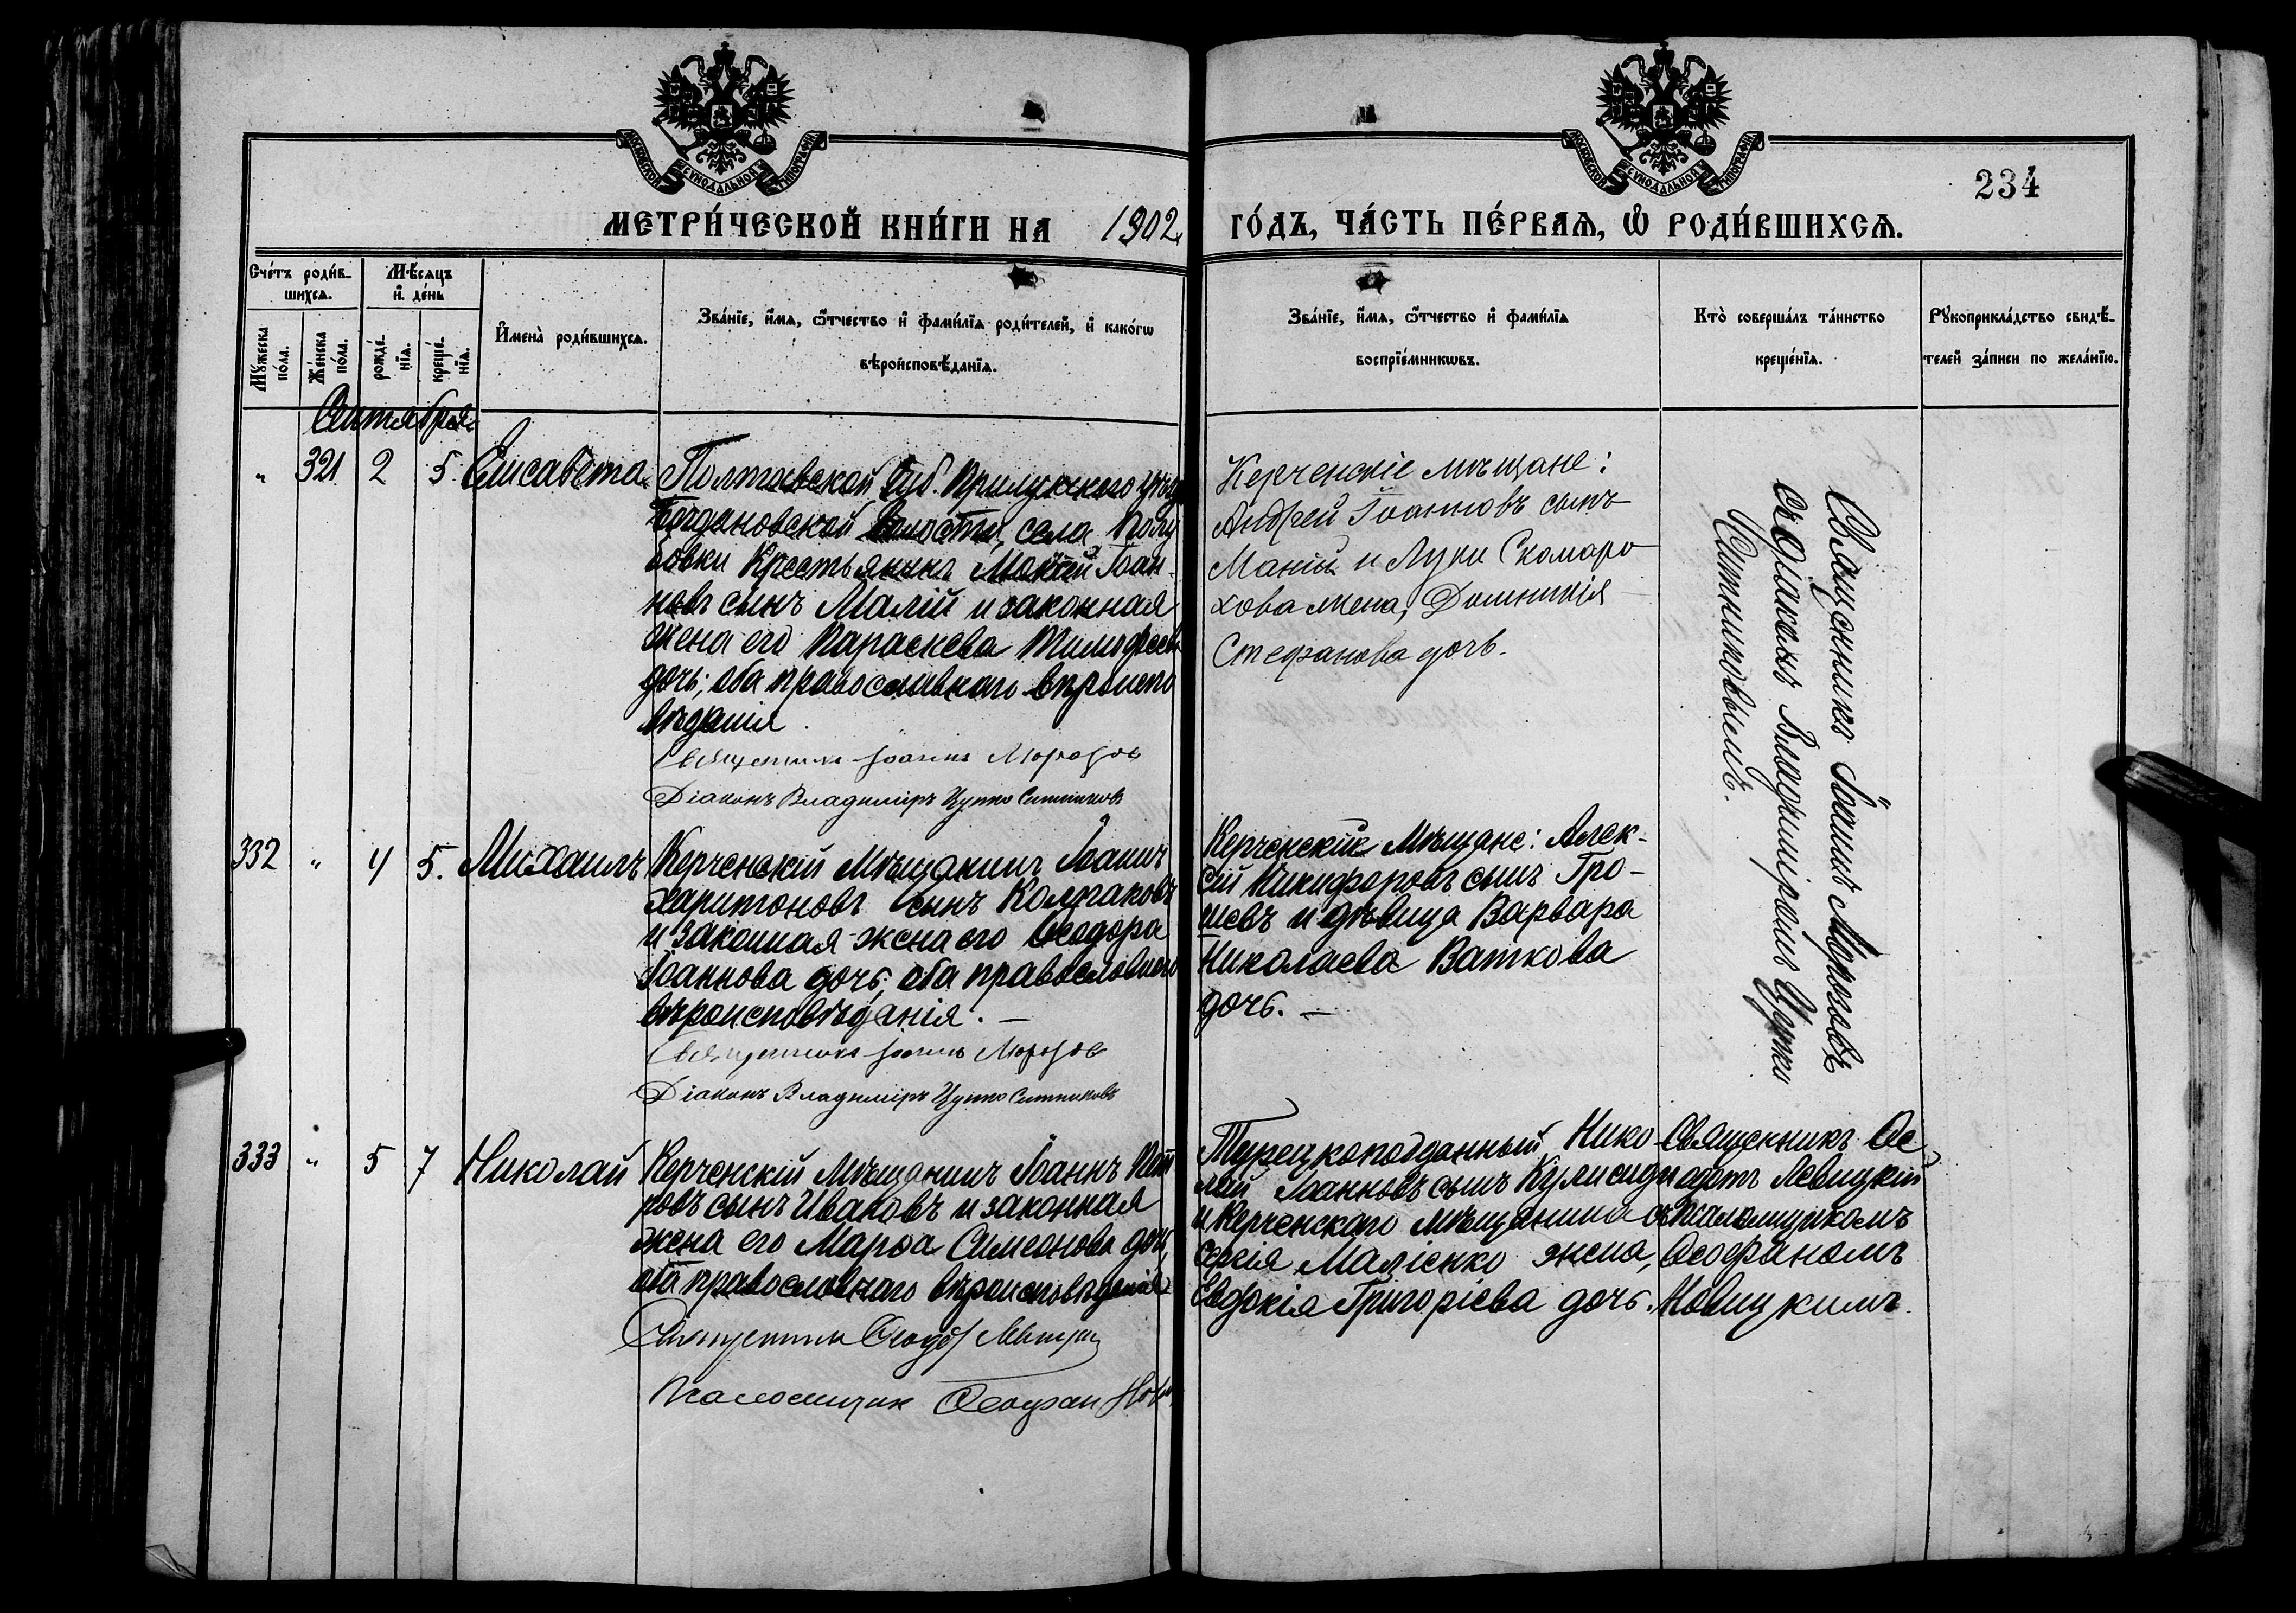 МОСКОВСКОЙ СѴНОДАЛЬНОЙ ТИПОГРАФІИ
МОСКОВСКОЙ СѴНОДАЛЬНОЙ ТИПОГРАФІИ
234
МЕТРИ́ЧЕСКОЙ КНИ́ГИ НА 1902
ГО́ДЪ, ЧА́СТЬ ПЕ́РВАѦ, Ѡ҆ РОДИ́ВШИХСѦ.
Сче́тъ роди́в-
шихсѧ.
Мѣ́сѧцъ
и҆ де́нь
Мꙋ́жеска по́ла.
Же́нска по́ла.
рожде́-
нїѧ.
креще́-
нїѧ.
И҆мена̀ роди́вшихсѧ.
Зва́нїе, и҆́мѧ, ѻ҆́тчество и҆ фами́лїѧ роди́телей, и҆ како́гѡ
вѣроисповѣ́данїѧ.
Зва́нїе, и҆́мѧ, ѻ҆́тчество и҆ фами́лїѧ
воспрїе́мникѡвъ.
Кто̀ соверша́лъ та́инство
креще́нїѧ.
Рꙋкоприкла́дство свидѣ́-
телей за́писи по жела́нїю.
Сентября
" 321 2 5. Елисавета
Полтавской Губ. Прилукскаго уѣзд
Богдановской волости, села Полу
ровки Крестьянинъ Мокій Іоан-
новъ сынъ Малій и законная
жена его Параскева Тимофеев
дочь; оба православнаго вѣроиспо
вѣданія.
Священникъ Іоаннъ Морозов
Діаконъ Владиміръ Цупко Ситников
Керченскіе мѣщане:
Андрей Іоанновъ сынъ
и Луки Скомаро
хова жена, Домникія
Стефанова дочь.
Священникъ Іоаннъ Морозовъ
съ Діакономъ Владиміромъ Цупко
Ситниковымъ.
332 " 4 5. Михаилъ
Керченскій Мѣщанинъ Іоаннъ
Харитоновъ сынъ Колпаковъ
и законная жена его Ѳеодора
Іоаннова дочь; оба православнаго
вѣроисповѣданія. —
Священникъ Іоаннъ Морозов
Діаконъ Владиміръ Цупко Ситниковъ
Керченскіе Мѣщане: Алек-
сій Никифоровъ сынъ Гро-
шевъ и дѣвица Варвара
Николаева Ваткова
дочь. —
333 " 5 7 Николай
Керченскій Мѣщанинъ Іоаннъ Пет
ровъ сынъ Ивановъ и законная
жена его Марѳа Симеонова дочь,
оба православнаго вѣроисповѣданія
Священникъ Ѳеодот Левицкий
Псаломщик Ѳеофан Нов
Турецкоподданный Нико-
лай Іоанновъ сынъ Кулисиди
и Керченскаго Мѣщанина
Сергія Малienко жена,
Евдокія Григоріева дочь.
Священникъ Ѳе
одотъ Левицкій
съ Псаломщикомъ
Ѳеофаномъ
Новицкимъ.